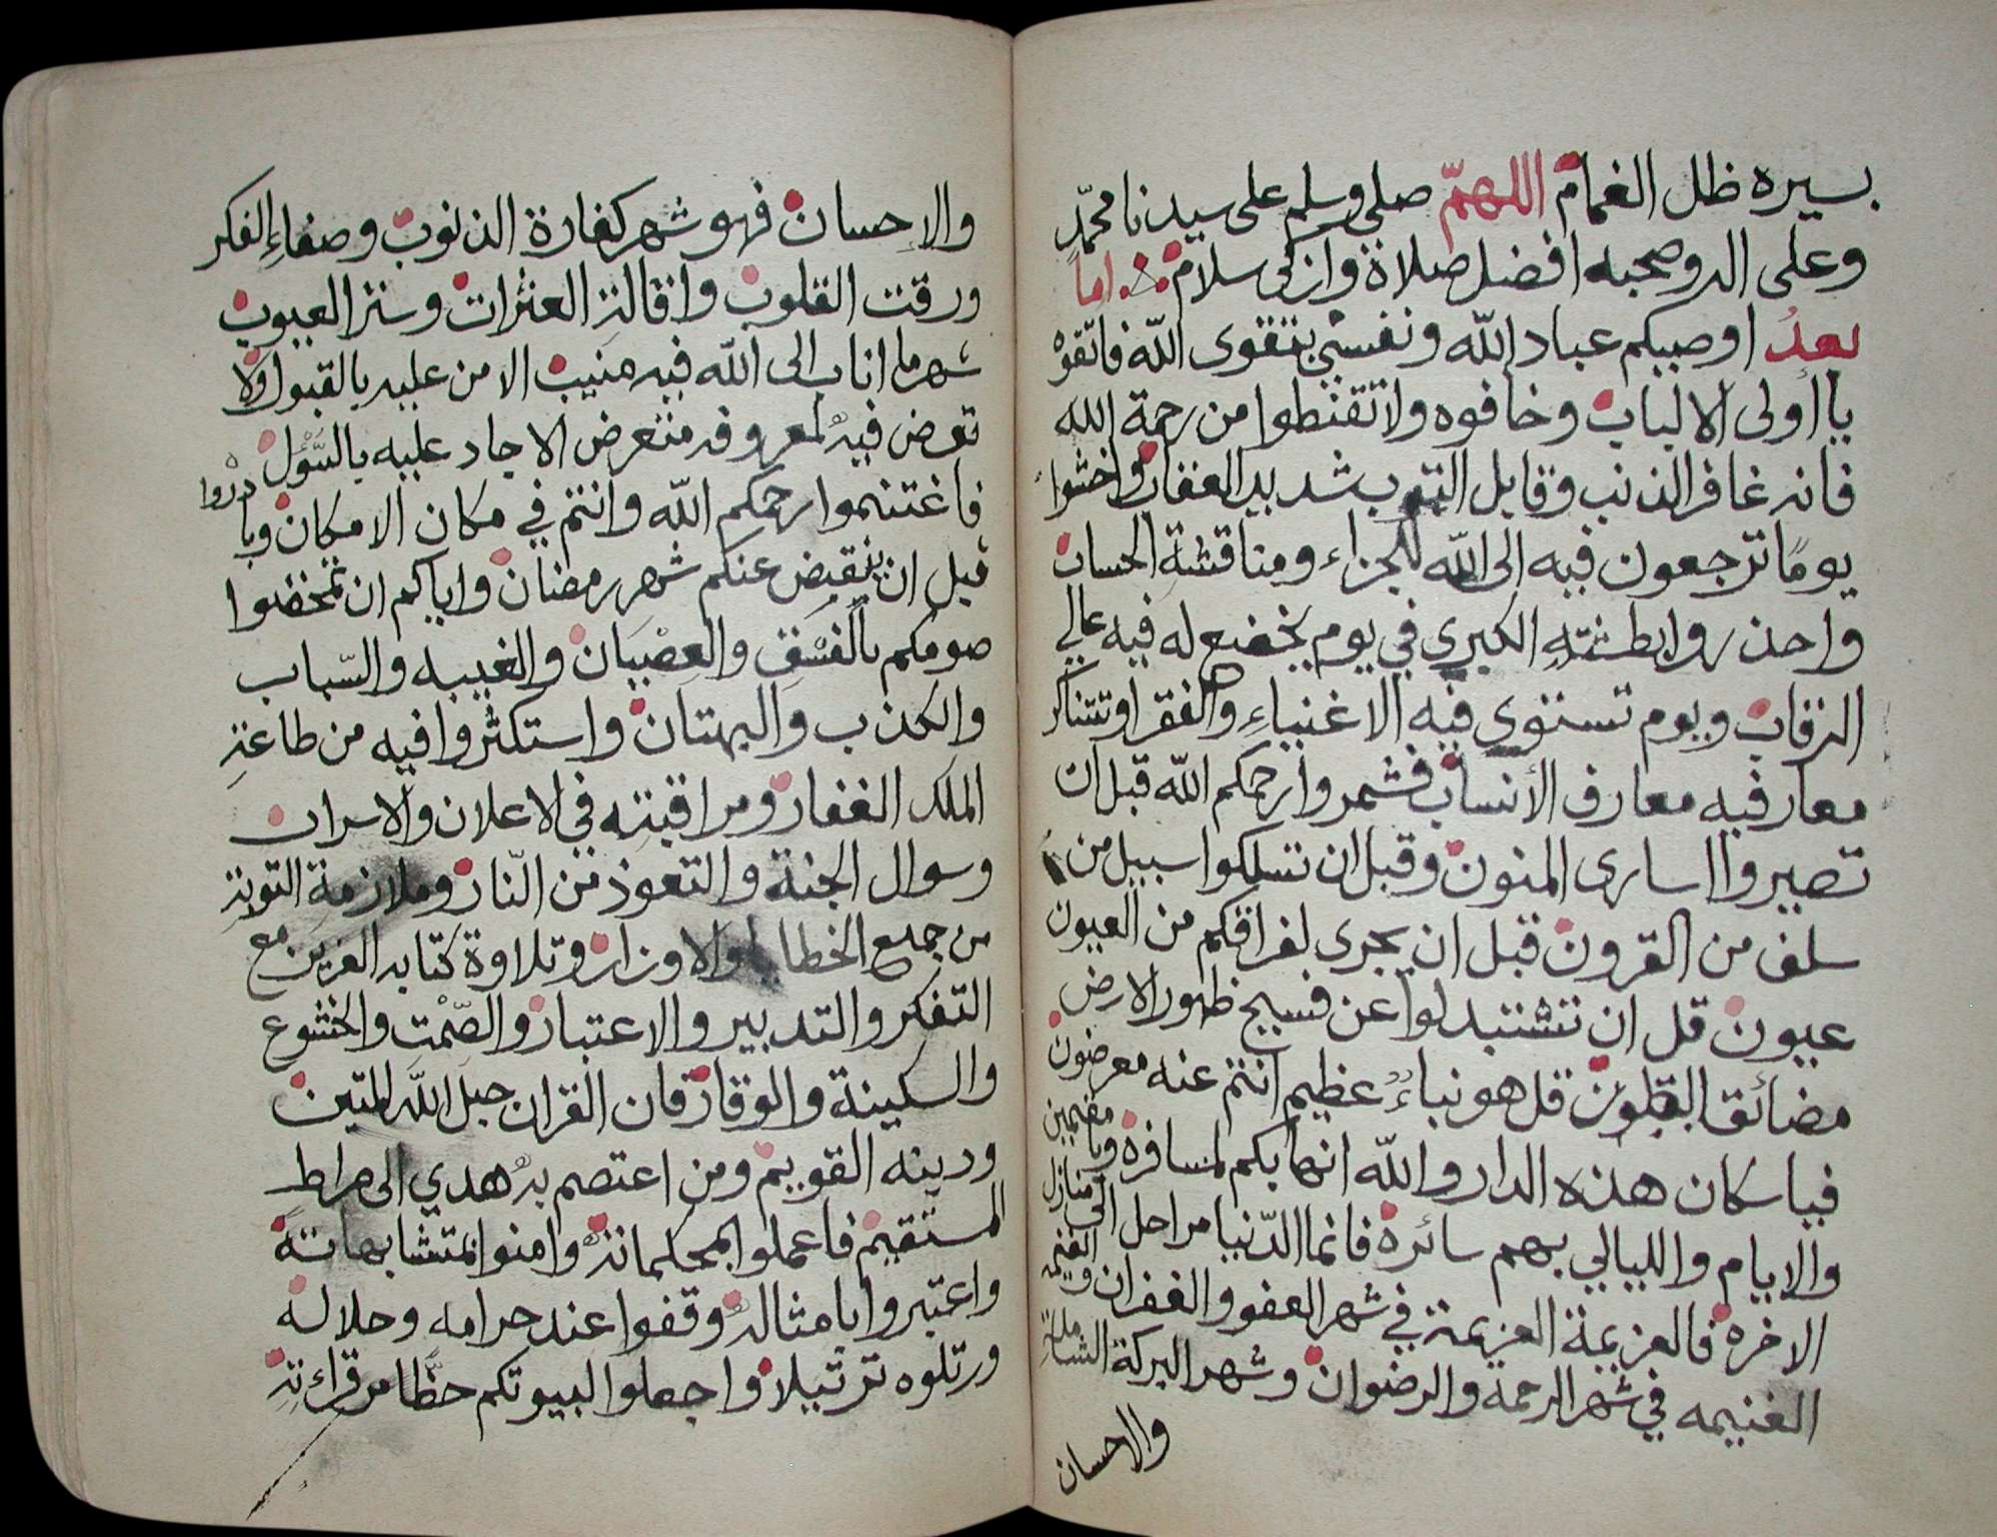 بسيره ظل الغمام اللهمّ صلى وسلم على سيدنا محمّد
وعلى اله وصحبه افضل صلاة وازكى سلام اما
بعدُ اوصيكم عباد الله ونفسي بتقوى الله فاتّقوه
يا أولى الالباب وخافوه ولا تقنطوا من رحمة الله
فانه غافر الذنب وقابل التوب شديد العقاب واخشوا
يومًا ترجعون فيه الى الله للجزاء ومناقشة الحساب
واحذروا بطشته الكبرى في يوم يخضع له فيه عالي
الرقاب ويوم تستوي فيه الاغنياء والفقرا وتتناكر
معارفيه معارف الأنساب فشمروا رحمكم الله قبل ان
تصيروا اسارى المنون وقبل ان تسلكوا سبيل من
سلف من القرون قبل ان يجرى لفراقكم من العيون
عيون قل ان تشتبدلوا عن فسيح ظهور الارض
مضائق البطون قل هو نباءٌ عظيم انتم عنه معرضون
فيا سكان هذه الدار والله انها بكم لمسافرة ويا مقيمين
والايام والليالي بهم سائرة فانما الدّنيا مراحل الى منازل
الاخره فالعزيمة العزيمة في شهر العفو والغفران والغنيمه
الغنيمه في شهر الرحمة والرضوان وشهر البركة الشاملة
والاحسان
والاحسان فهو شهر كفارة الذنوب وصفاءِ الفكر
ورقت القلوب واقالة العثرات وستر العيوب
شهر ما اناب الى الله فيه منيب الا من عليه بالقبول ولا
تعرض فيه لمعروفه متعرض الا جاد عليه بالسّؤل
فاغتنموا رحمكم الله وانتم في مكان الامكان وبادروا
قبل ان ينقبض عنكم شهر رمضان واياكم ان تمخضوا
صومكم بالفسْق والعصْيان والغيبه والسّباب
والكذب والبهتان واستكثروا فيه من طاعة
الملك الغفار ومراقبته في الاعلان والاسرار
وسوال الجنة والتعوذ من النّار وملازمة التوبة
من جميع الخطايا والاوزار وتلاوة كتابه العزيز مع
التفكر والتدبير والاعتبار والصّمْت والخشوع
والسكينة والوقار فان القران حبل الله المتين
ودينه القويم ومن اعتصم به هدي الى صراط
المستقيم فاعملوا بمحكماته وامنوا بمتشابهاته
واعتبروا بامثاله وقفوا عند حرامه وحلاله
ورتلوه ترتيلا واجعلوا لبيوتكم حظّا من قراءته